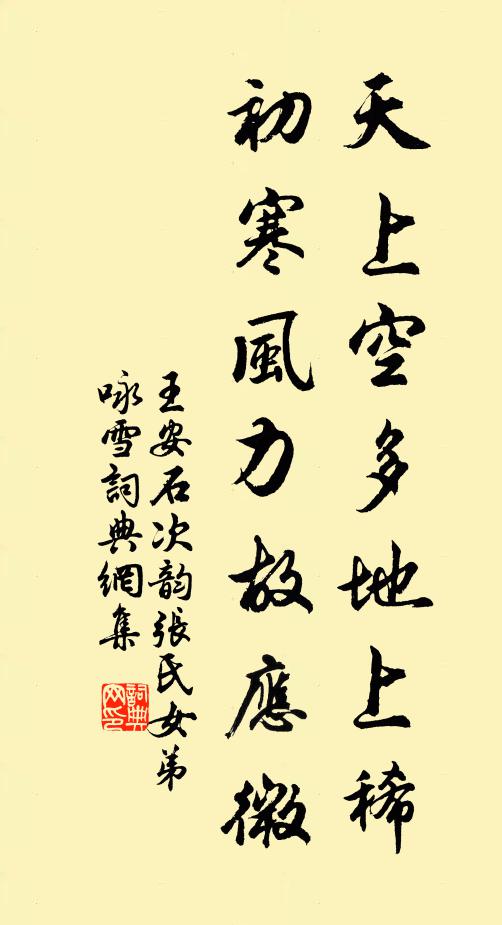 天上空多地上稀
初寒風力故應微
王安石次韵張氏女弟
咏雪詞典網集
詞典网印